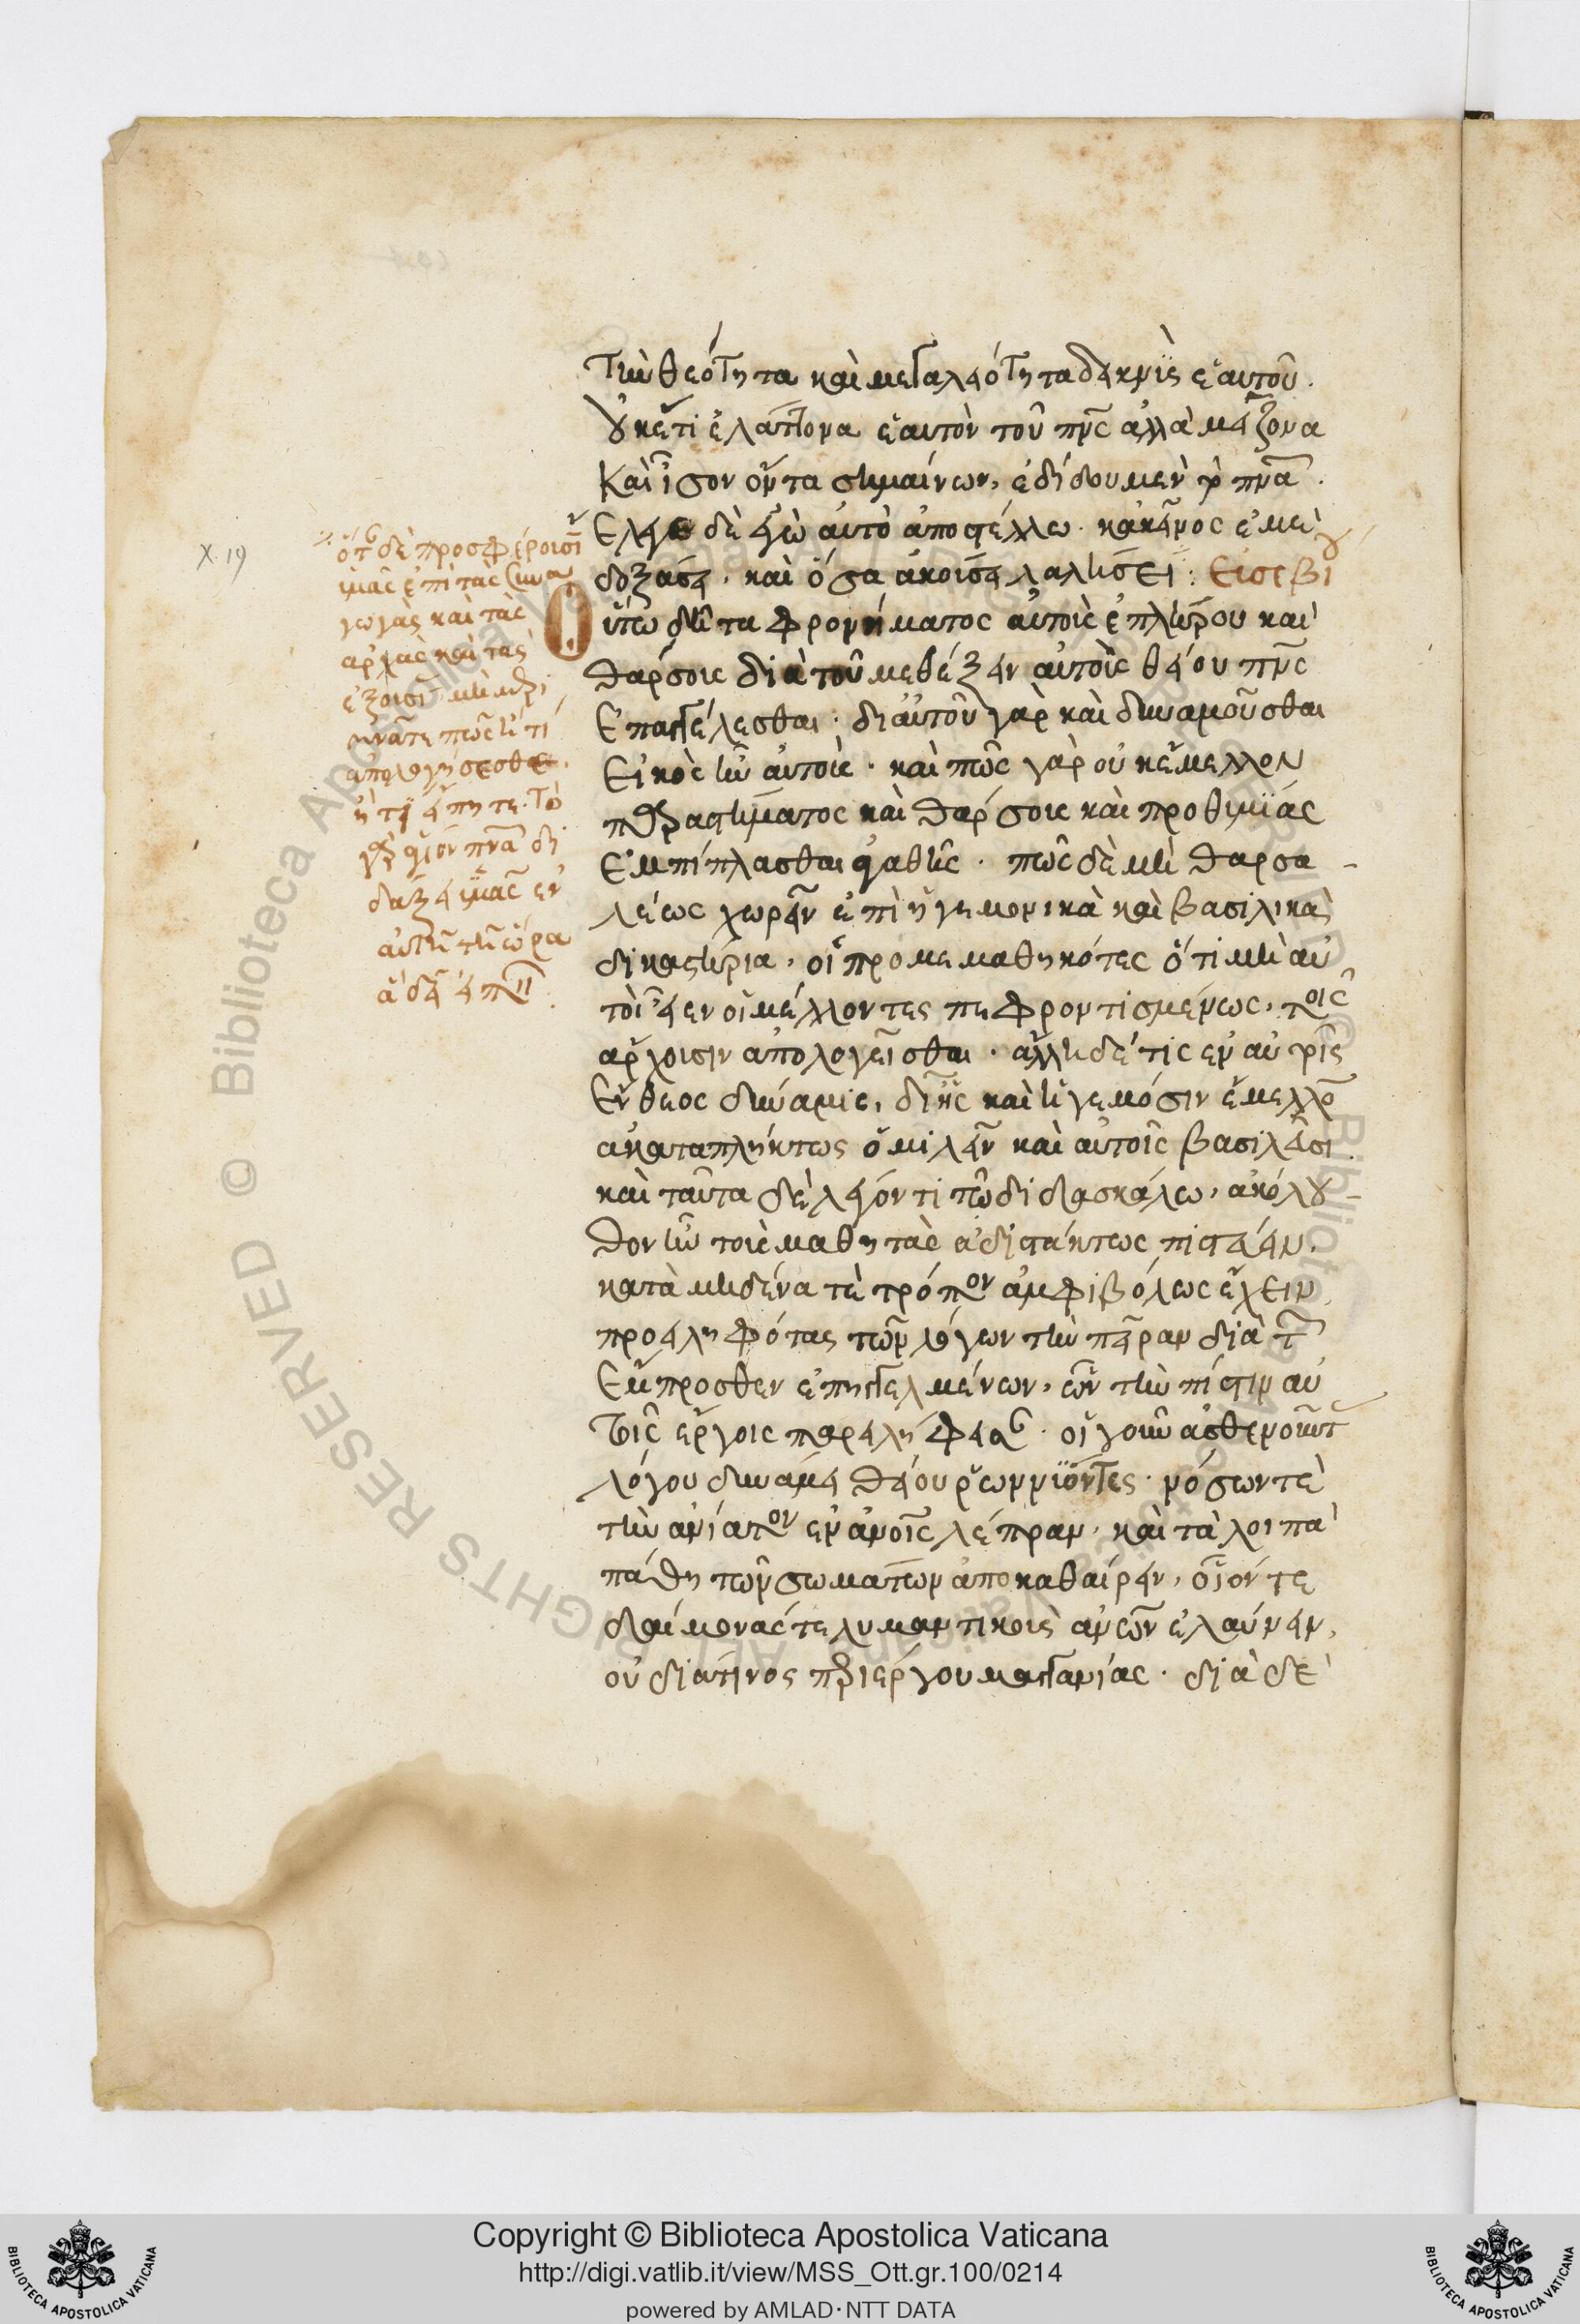 Τὴν θεότητα καὶ μεγαλειότητα δεικνὺς ἑαυτοῦ.
οὐκέτι ἐλάττονα ἑαυτὸν τοῦ πνς ἀλλὰ μείζονα
Καὶ ἴσον ὄντα σημαίνων, ἐδίδου μὲν τὸ πνα.
Ἔλεγε δὲ ἐγὼ αὐτὸ ἀποστέλλω. κἀκεῖνος ἐμὲ
δοξάσει. καὶ ὅσα ἀκούσει λαλήσει: Εὐσεβίου
Οὕτω δῆτα φρονήματος αὐτοὺς ἐπλήρου καὶ
θάρσους διὰ τοῦ μεθέξειν αὐτοῖς θείου πνς
Ἐπαγγέλεσθαι. δι αὐτοῦ γὰρ καὶ δυναμοῦσθαι
Εἰκὸς ἦν αὐτοὺς. καὶ πῶς γὰρ οὐκ ἔμελλον
παραστήματος καὶ θάρσους καὶ προθυμίας
Ἐμπίπλασθαι ἀγαθῆς. πῶς δὲ μὴ θαρσα-
λέως χωρεῖν ἐπὶ ἡγεμονικὰ καὶ βασιλικὰ
δικαστήρια, οἱ προμεμαθηκότες ὅτι μὴ αὐ
τοὶ εἶεν οἱ μέλλοντες πεφροντισμένως, τοῖς
ἄρχουσιν ἀπολογεῖσθαι. ἄλλη δέ τις ἐν αὐτοῖς
Ἔνθεος δύναμις, δι ἧς καὶ ἡγεμόσιν ἔμελλον
ἀκαταπλήκτως ὁμιλεῖν καὶ αὐτοῖς βασιλεῦσι.
καὶ ταῦτα δὲ λέγοντι τῷ διδασκάλῳ, ἀκόλου-
θον ἦν τοὺς μαθητὰς ἀδιστάκτως πιστεύειν.
κατὰ μηδένα τὲ τρόπον ἀμφιβόλως ἔχειν,
προειληφότας τῶν λόγων τὴν πεῖραν διὰ τῶν
Ἔμπροσθεν ἐπηγγελμένων, ὧν τὴν πίστιν αὐ
τοῖς ἔργοις παρειλήφεσαν. οἱ γοῦν ἀσθενοῦντας
λόγου δυνάμει θείου ῥωννύοντες. νόσων τὲ
τὴν ἀνίατον ἐν ἀνοις λέπραν, καὶ τὰ λοιπὰ
πάθη τῶν σωμάτων ἀποκαθαίρειν, οἷόν τε
δαίμονάς τε λυμαντικοὺς ἀνων ἐλαύνειν,
οὐ διά τινος περιέργου μαγγανείας. διὰ δὲ
X. 19
ὅταν δὲ προσφέρουσιν
ὑμᾶς ἐπὶ τὰς συνα
γωγὰς καὶ τὰς
ἀρχὰς καὶ τὰς
ἐξουσίας μὴ μερι
μνᾶτε πῶς ἢ τί
ἀπολογήσεσθε.
ἢ τί εἴπητε. Τὸ
γὰρ ἅγιον πνα δι
δάξει ὑμᾶς ἐν
αὐτῇ τῇ ὥρα
ἃ δεῖ εἰπεῖν.
Copyright © Biblioteca Apostolica Vaticana
http://digi.vatlib.it/view/MSS_Ott.gr.100/0214
powered by AMLAD·NTT DATA
BIBLIOTECA APOSTOLICA VATICANA
BIBLIOTECA APOSTOLICA VATICANA